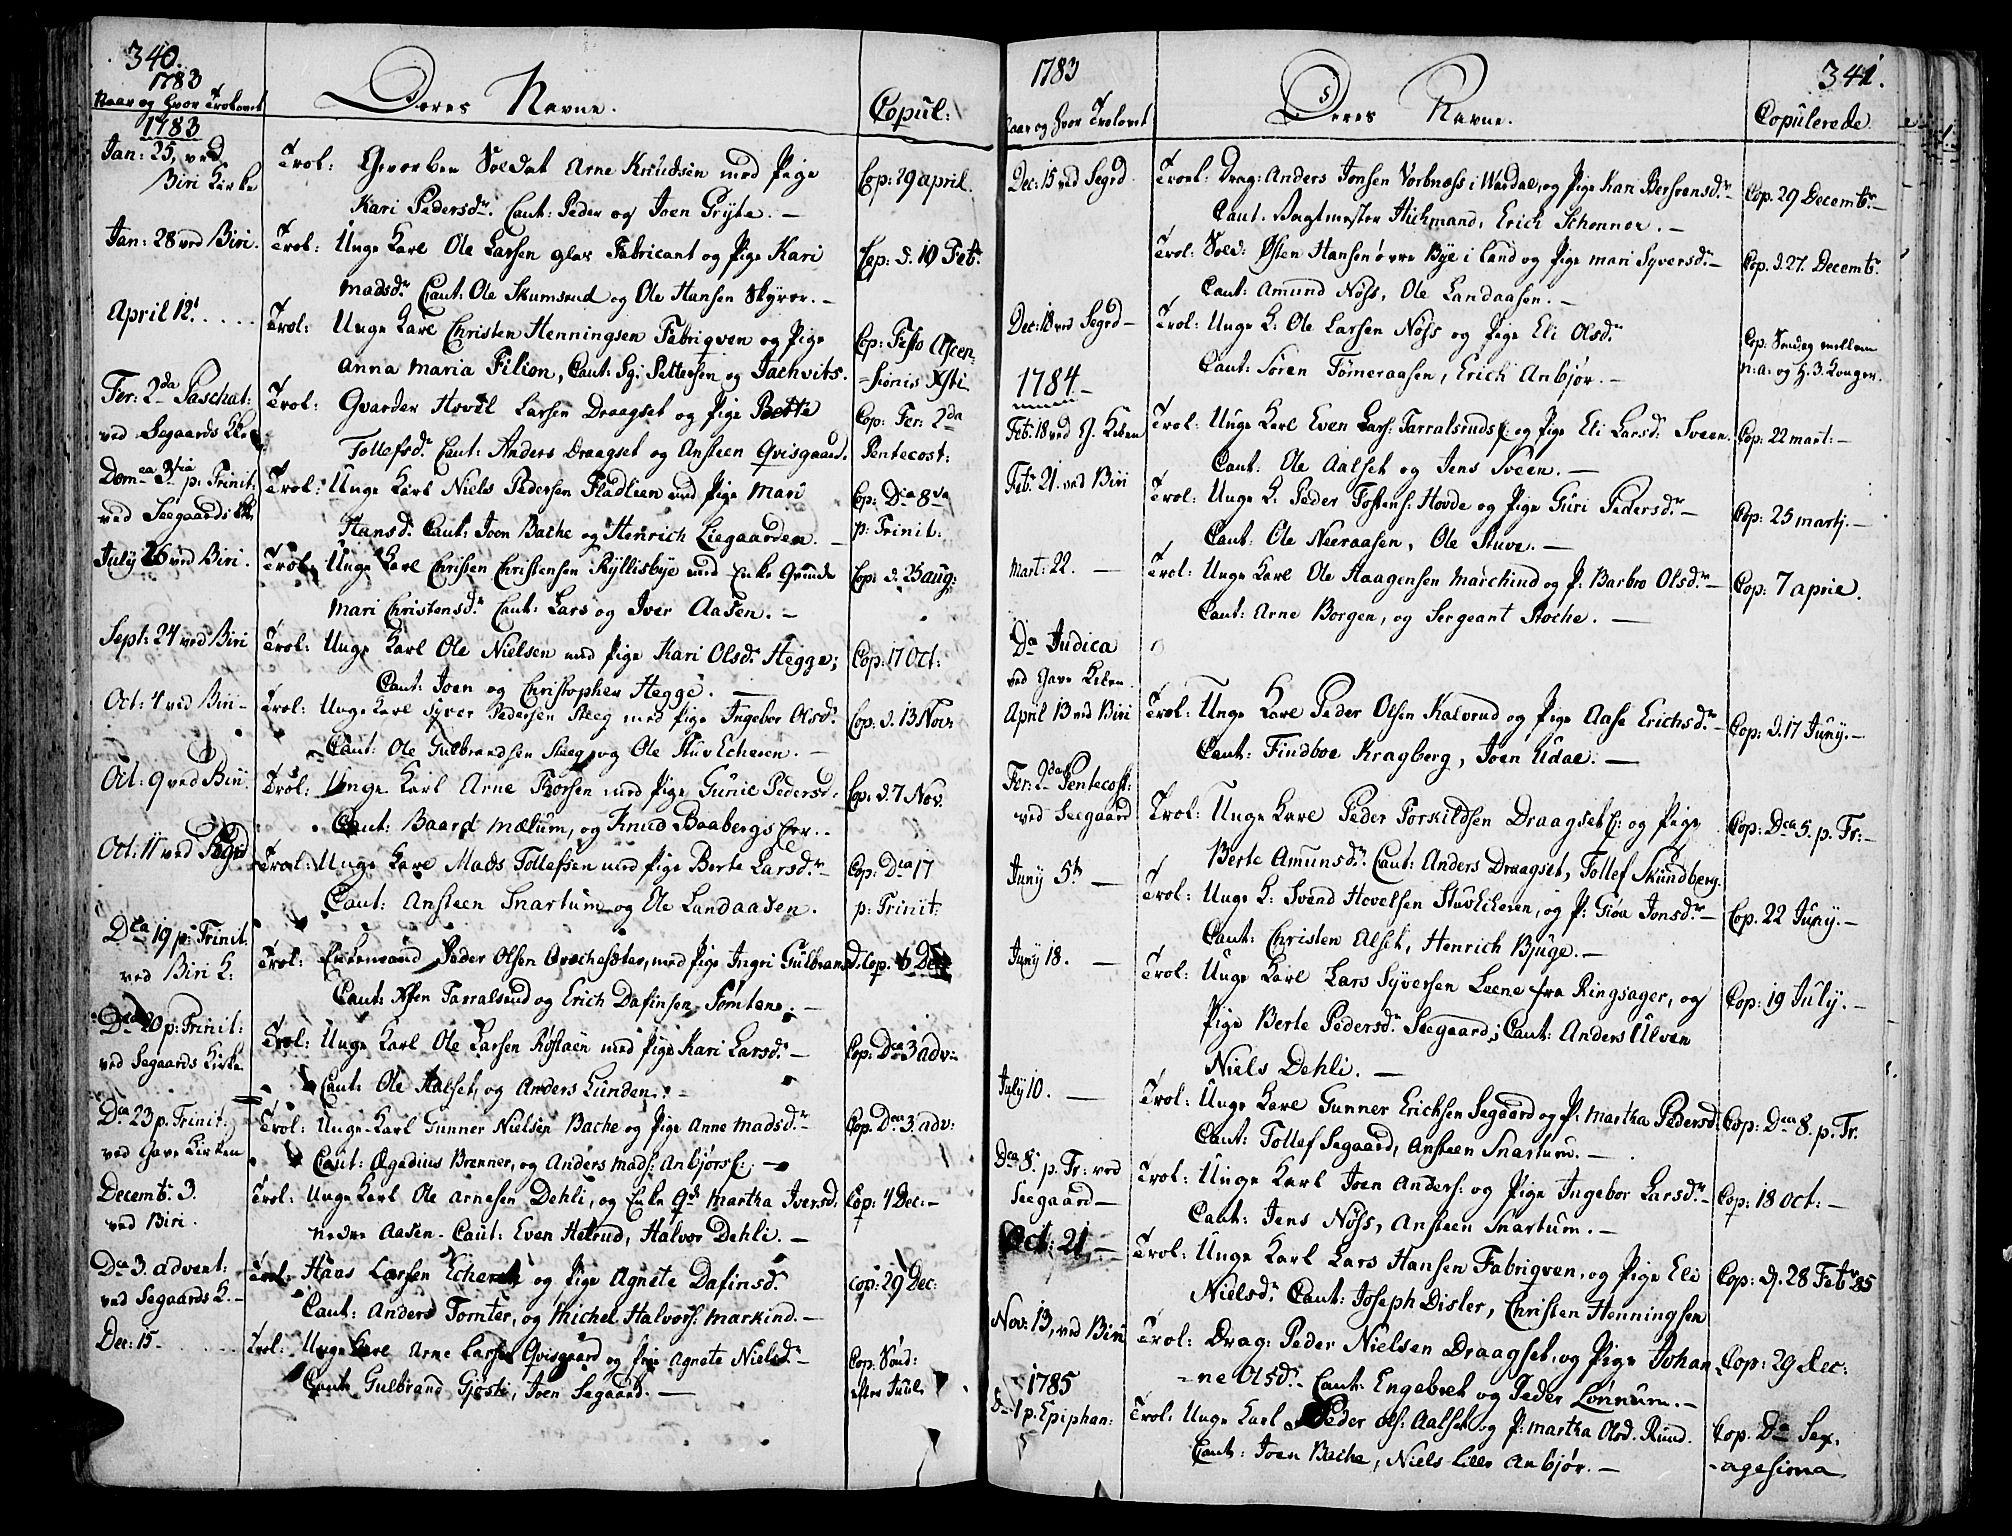 340.
1783
Naar og hvor Trolovet
Deres Navne.
Copul:
1783
Jan: 25, ved
Biri Kirke
Trol: Gevorben Soldat Arne Knudsen med Pige
Kari Pedersdr. Caut: Peder og Joen Gryte. —
Cop: 29 april.
Jan: 28 ved Biri.
Trol: Unge Karl Ole Larsen glas Fabricant og Pige Kari
Madsdr. Caut: Ole Skumsrud og Ole Hansen Skyrer. —
Cop: d. 10 Febr.
April 12. . . . .
Trol: Unge Karl Christen Henningsen Fabriqven og Pige
Anna Maria Filion, Caut: Sg: Pettersen og Jachvits.
Cop: Festo Ascen-
-sionis Xsti
Fer: 2da Paschat:
ved Segaards Kke
Trol: Gvarder Hovel Larsen Draagset og Pige Berte
Tollefsdr. Caut: Anders Draagset og Ansteen Qvisgaard.
Cop: Fer: 2da
Pentecost:
Dom: 3tia p: Trinit:
ved Seegaards Kk.
Trol: Unge Karl Niels Pedersen Fladlien med Pige Mari
Hansdr. Caut: Joen Bache og Henrich Liegaarden. —
Cop: Dca 8va
p: Trinit:
July 26 ved Biri.
Trol: Unge Karl Christen Christensen Kyllisbye med Enke Qvinde
Mari Christensdr. Caut: Lars og Iver Aasen. —
Cop: d. 23 aug:
Sept: 24 ved Biri
Trol: Unge Karl Ole Nielsen med Pige Kari Olsdr. Hegge;
Caut: Joen og Christopher Hegge. —
Cop: 17 Oct:
Oct: 4 ved Biri —
Trol: Unge Karl Syver Pedersen Steeg med Pige Ingebor Olsdr.
Caut: Ole Gulbrandsen Steeg og Ole Stuvlcheren. —
Cop: d. 13 Novr
Oct: 9 ved Biri.
Trol: Unge Karl Arne Thorsen med Pige Gunie Pedersd. —
Caut: Baard Mælum, og Knud Baabergs Eer. —
Cop: d. 7 Nov.
Oct: 11 ved Segrd
Trol: Unge Karl Mads Tollefsen med Pige Berte Larsdr. —
Caut: Ansteen Snartum og Ole Landaasen.
Cop: Dca 17
p: Trinit:
Dca 19 p: Trinit.
ved Biri K:
Trol: Enkemand Peder Olsen Overhesæter, med Pige Ingri Gulbransd.
Caut: Østen Tarralsrud og Erich Dafinsen Tomten. —
Cop. 6 Dec
Dca 20 p: Trinit:
ved Segaards Kirke
Trol: Unge Karl Ole Larsen Røstøen med Pige Kari Larsdr. —
Caut: Ole Aalset, og Anders Lunden. —
Cop: Dca 3 adv:
Dca 23 p. Trinit:
ved Gave Kirken
Trol: Unge Karl Gunner Nielsen Bache og Pige Anne Madsdr. —
Caut: Ægedius Brenner, og Anders Mads: Anbjørs: —
Cop. Dca 3. adv:
Decembr. 3.
ved Biri.
Trol: Unge Karl Ole Arnesen Dehli, og Enke Qd: Martha Iversd:
nedre Aasen. Caut: Even Helsrud, Halvor Dehli. —
Cop: 4 Dec: —
Dca 3. advent:
ved Segaards K. —
Trol: Hans Larsen Echeren og Pige Agnete Dafinsd.
Caut: Anders Tomter, og Michel Halvors: Markind. —
Cop: 29 Dec:
Dec: 15 — . . . .
Trol: Unge Karl Arne Larsen Qvisgaard og Pige Agnete Nielsdr. —
Caut: Gulbrand Gjøste, Joen Segaard. —
Cop. Sønd:
efter Juul.
1783
341.
Naar og hvor Trolovet
Deres Navne.
Copulerede.
Dec: 15 ved Segrd
Trol: Drag: Anders Jonsen Vorbnæss i Wardal, og Pige Kari Berhrensdr. —
Caut. Vagtmester Hichmand, Erich Schonner. —
Cop. 29 Decembr. —
Trol: Sold: Østen Hansen øvre Bye i Land og Pige Mari Syversdr. —
Caut: Amund Nøss, Ole Landaasen. —
Cop. d. 27. Decembr.
Dec: 18 ved Segrd —
Trol: Unge K: Ole Larsen Nøss og Pige Eli Olsdr.
Caut: Søren Tømeraasen, Erich Anbjør. —
Cop: Søndag mellem
n:a: og H. 3. Konger.
1784. —
Feb: 18 ved G. Kken
Trol: Unge Karl Even Lars: Tarralsruds E: og Pige Eli Larsd: Sveen.
Caut: Ole Aalset og Jens Sveen. —
Cop: 22 mart: —
Febr. 21. ved Biri
Trol: Unge K. Peder Tostens: Hovde og Pige Guri Pedersdr. —
Caut: Ole Neeraasen, Ole Stuve. —
Cop: 25 martj. —
Mart: 22. —
Trol: Unge Karl Ole Haagensen Marchind og P: Barbro Olsdr. —
Caut: Arne Borgen, og Sergeant Stoche. —
Cop: 7 april.
Da Judica
ved Gave Kken.
April 13 ved Biri
Trol: Unge Karl Peder Olsen Kalvrud og Pige Aase Erichsdr. —
Caut: Findboe Kragberg, Joen Udal. —
Cop: d. 17 Juny. —
Fer: 2dæ Pentecost:
ved Seegaard
Trol: Unge Karl Peder Torkildsen Draagset E: og Pige
Berte Amunsdr. Caut: Anders Draagset, Tollef Skundberg.
Cop: Dca 5. p. Tr: —
Juny 5te —
Trol: Unge K: Svend Hovelsen Stuvlcheren, og P: Giøa Jonsdr. —
Caut: Christen Alset, Henrich Bjuge. —
Cop. 22 Juny. —
Juny 18. —
Trol: Unge Karl Lars Syversen Leene fra Ringsager, og
Pige Berte Pedersdr. Seegaard; Caut: Anders Ulven
Niels Dehli. —
Cop: 19 July. —
July 10. —
Trol: Unge Karl Gunner Erichsen Segaard og P: Martha Pedersd:
Caut: Tollef Segaard, Ansteen Snartum. —
Cop: Dca 8. p. Tr.
Dca 8. p. Tr: ved
Seegaard —
Trol: Unge Karl Joen Anders: og Pige Ingebor Larsdr. —
Caut: Jens Nøss, Ansteen Snartum. —
Cop: 18 oct: —
Oct: 21, —
Trol: Unge Karl Lars Hansen Fabriqven, og Pige Eli
Nielsdr. Caut: Joseph Disler, Christen Henningsen
Cop: d. 28 Febr. 85
Nov: 13, ved Biri
Trol: Drag: Peder Nielsen Draagset, og Pige Johan
-ne Olsdr. — Caut: Engebret og Peder Lonnum. —
Cop: 29 Dec:
1785
Da 1 p. Epiphan:
Trol: Unge Karl Peder Ols: Aalset og P: Martha Olsd. Rund.
Caut: Joen Bache, Niels Lille Anbjør. —
Cop. Da Sex-
-agesima